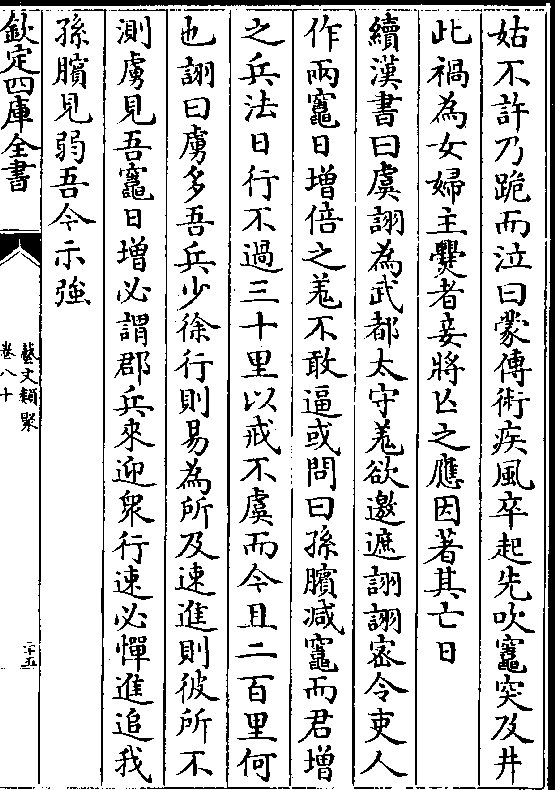 姑不許乃跪而泣曰蒙傳術疾風卒起先吹竈突及井
此禍為女婦主爨者妾將亡之應因著其亡日
續漢書曰虞詡為武都太守羗欲邀遮詡詡宻令吏人
作兩竈日增倍之羗不敢逼或問曰孫臏减竈而君增
之兵法日行不過三十里以戒不虞而今且二百里何
也詡曰虜多吾兵少徐行則易為所及速進則彼所不
測虜見吾竈日增必謂郡兵來迎衆行速必憚進追我
孫臏見弱吾今示強
欽定四庫全書
藝文類聚
卷八十
二十五